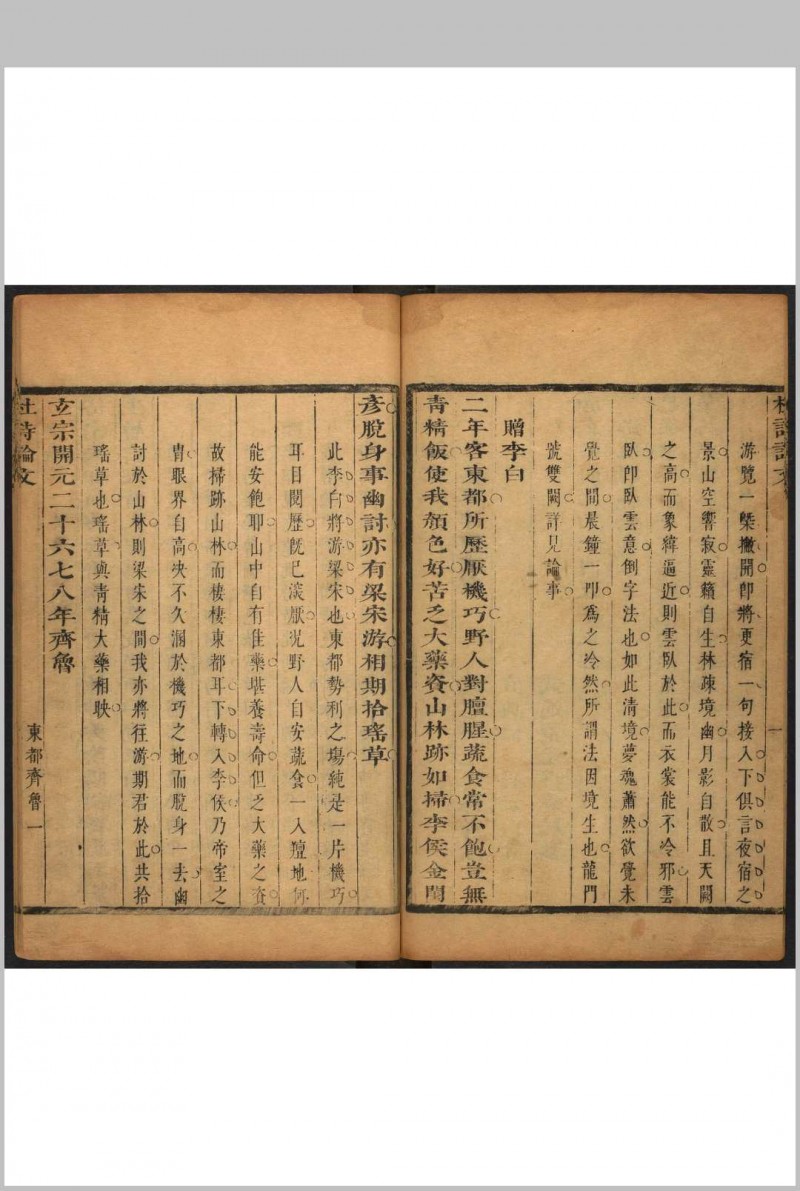 游覽一槩撇開卽將更宿一句接入下俱言夜宿之
景山空響寂靈籟自生林疎境幽月影自散且天闕
之高而象緯逼近則雲臥於此而衣裳能不冷邪雲
臥卽臥雲意倒字法也如此清境夢魂蕭然欲覺未
覺之間晨鐘一叩爲之冷然所謂法因境生也龍門
號雙闕詳見論事
贈李白
二年客東都所歷厭機巧野人對膻腥蔬食常不飽豈無
青精飯使我顏色好苦乏大藥資山林跡如掃李侯金閨
彥脫身事幽討亦有梁宋游相期拾瑤草
此李白將游梁宋也東都勢利之場純是一片機巧
耳目閱歷旣已深厭況野人自安蔬食一入羶地何
能安飽耶山中自有佳藥堪養壽命但乏大藥之資
故掃跡山林而棲棲東都耳下轉入李侯乃帝室之
冑眼界自高决不久溷於機巧之地而脫身一去幽
討於山林則梁宋之間我亦將往游期君於此共拾
瑤草也瑤草與青精大藥相映
玄宗開元二十六七八年齊魯
杜詩論文
東都齊魯 一